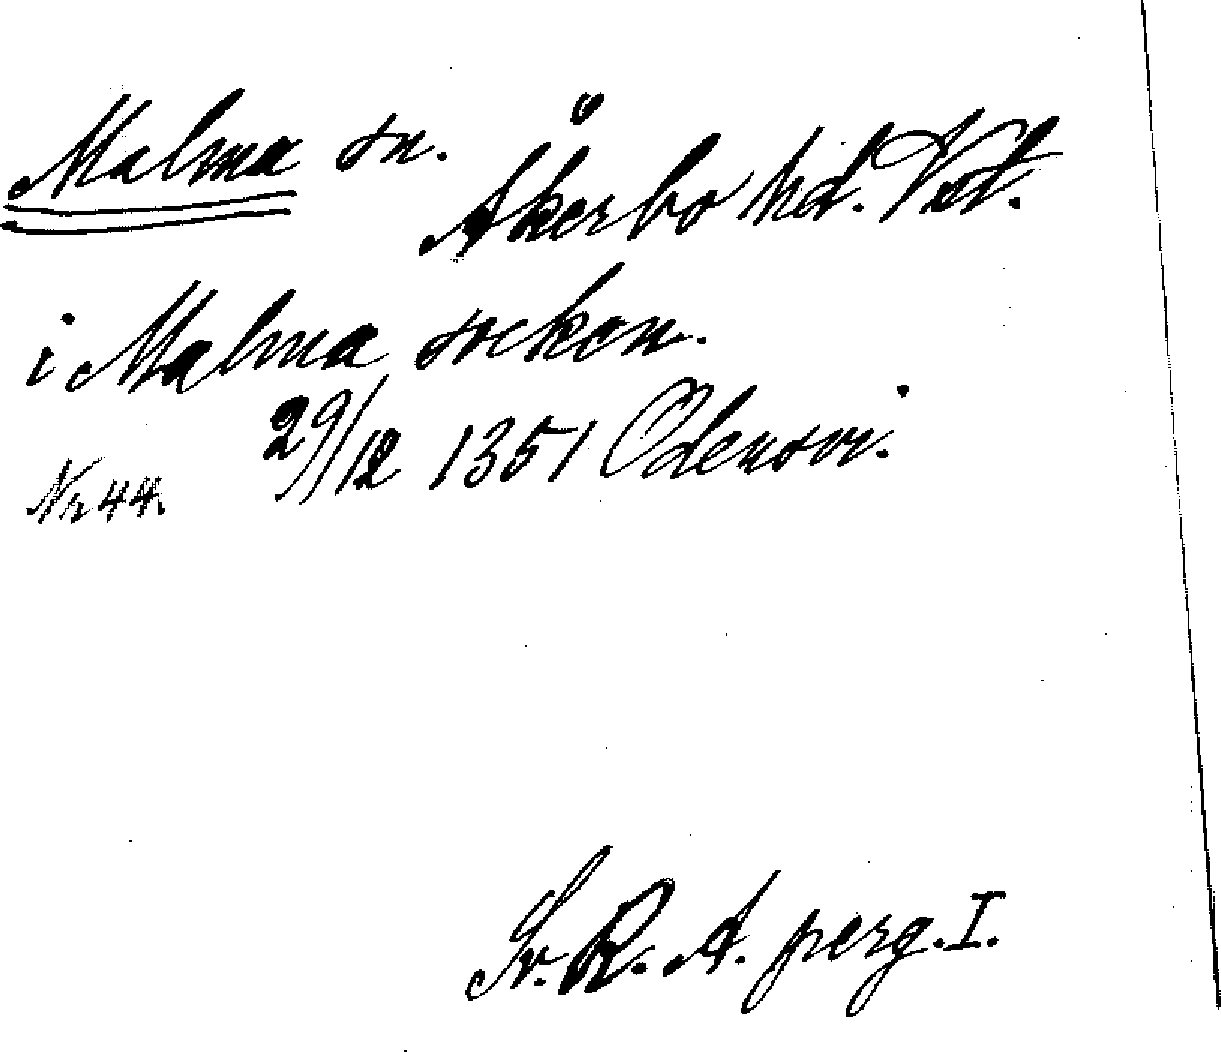 Malma sn.
Åkerbo hd. Vstl.
i Malma socken.
29/12 1351 Odensvi.
Nr 44.
Sv. R. A. perg. I.